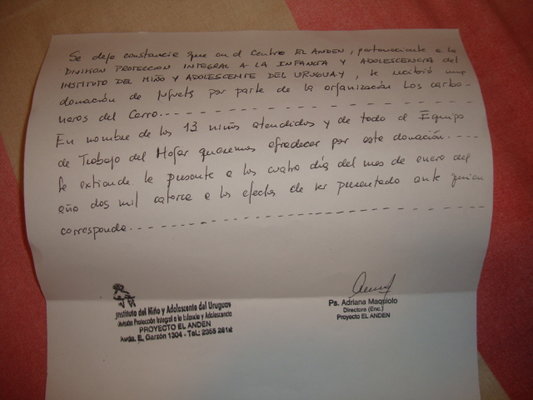 Se deja constancia que en el Centro EL ANDEN, perteneciente a la
DIVISIÓN PROTECCION INTEGRAL A LA INFANCIA Y ADOLESCENCIA del
INSTITUTO DEL NIÑO Y ADOLESCENTE DEL URUGUAY, se recibió una
donación de Nfuets por parte de la organización Los Carbo-
neros del Cerro.
En nombre de los 13 niños atendidos y de todo el Equipo
de Trabajo del Hogar queremos agradecer por esta donación.
Se extiende la presente a los cuatro días del mes de enero del
año dos mil catorce a los efectos de ser presentado ante quien
corresponda.
Instituto del Niño y Adolescente del Uruguay
División Protección Integral a la Infancia y Adolescencia
PROYECTO EL ANDEN
Avda. E. Garzón 1304 - Tel.: 2355 2612
Ps. Adriana Maquiolo
Directora (Enc.)
Proyecto EL ANDEN